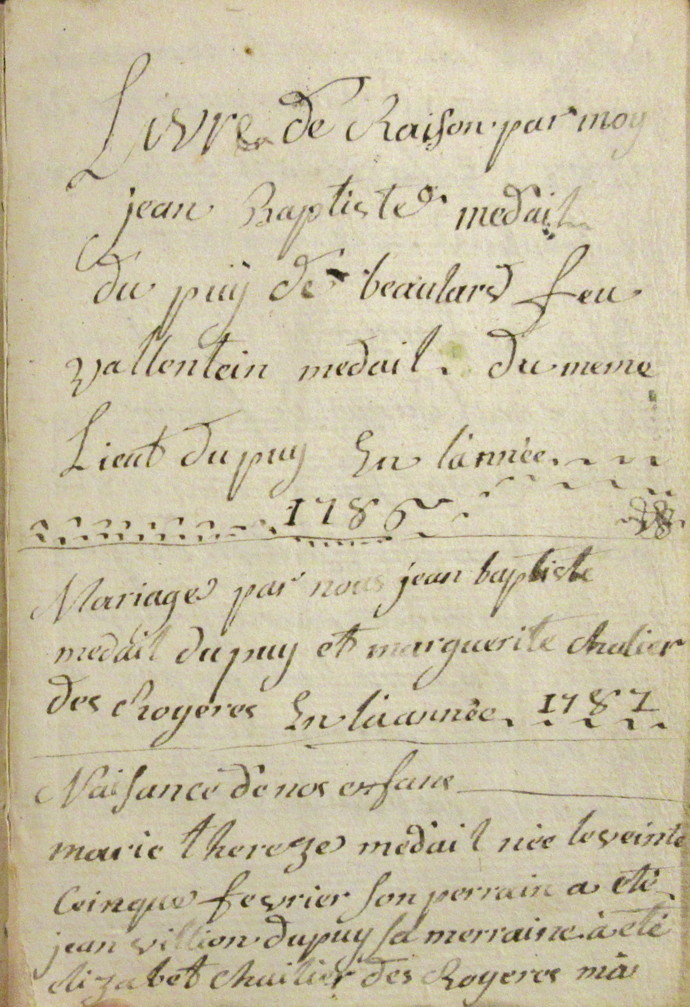 Livre de Raison par moy
jean Baptiste medail
du puÿ de beaulard feu
vallentein medail. du meme
Lieut du puy En l'année
1786
Mariage par nous jean baptiste
medail du puy et marguerite chalier
des Royeres En la année. 1787
Naisance de nos enfans
marie thereze medail née le veinte
Ceinque fevrier son perrain a eté
jean villion du puy sa merraine à eté
elizabet chailier des Royeres